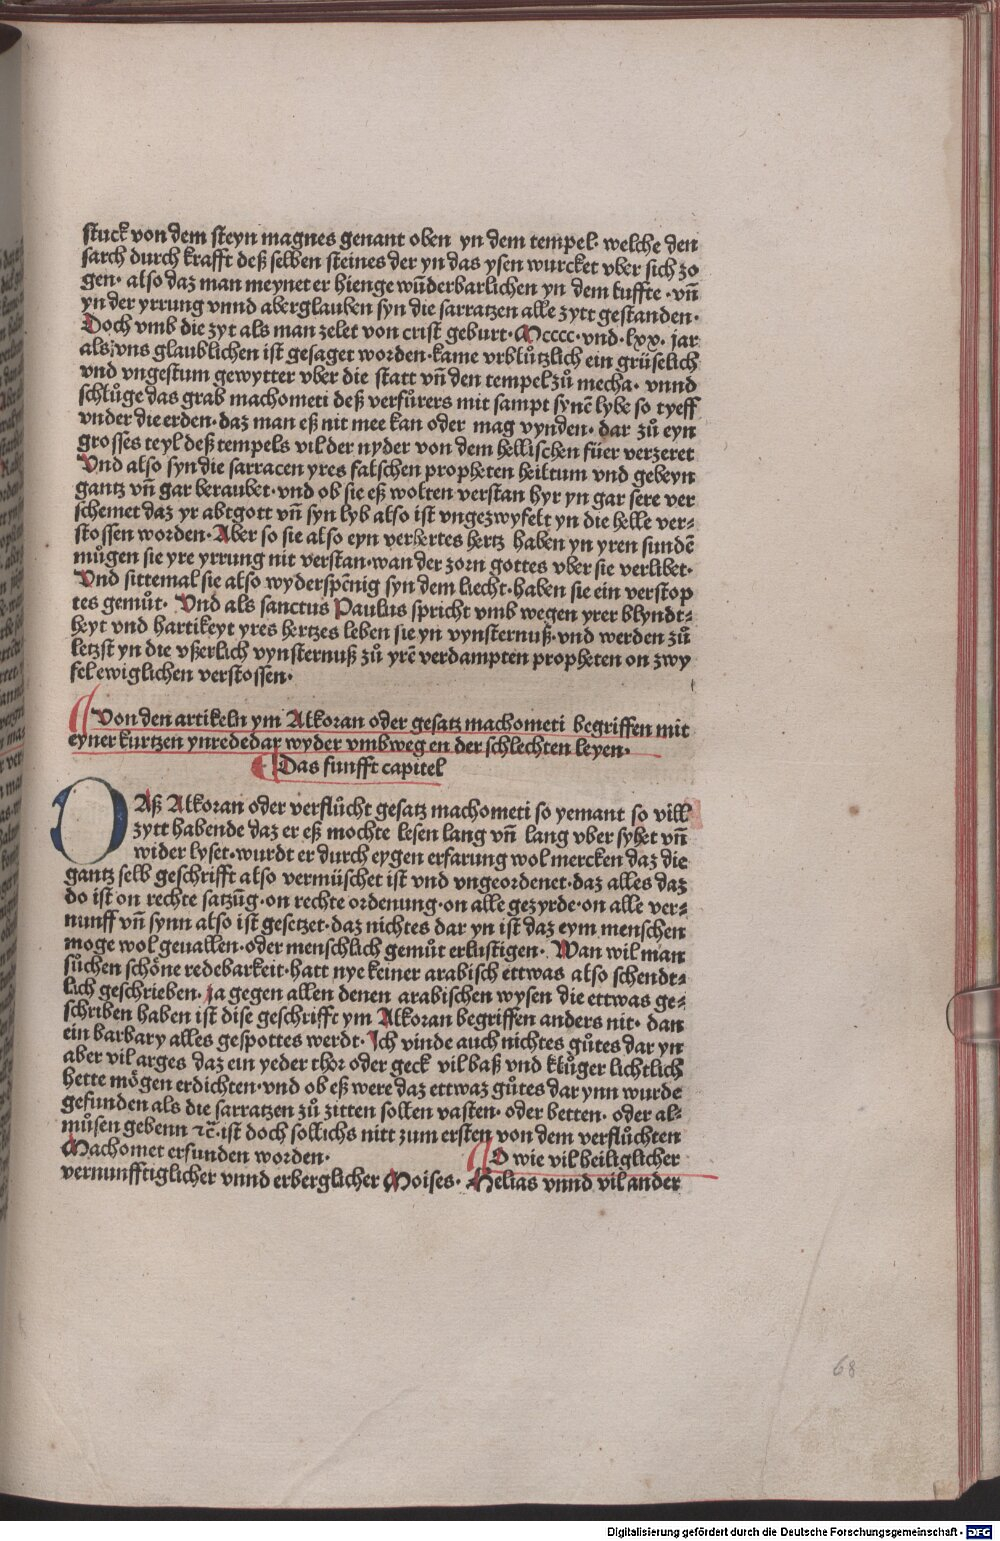 stuck von dem steyn magnes genant oben yn dem tempel· welche den
sarch durch krafft deß selben steines der yn das ysen wurcket vber sich zo
gen· also daz man meynet er hienge wūderbarlichen yn dem luffte ·vn̄
yn der yrrung vnnd aberglauben syn die sarratzen alle zytt gestanden·
Doch vmb die zyt als man zelet von crist geburt· Mcccc· vnd· lxx· jar
als vns glaublichen ist gesaget worden· kame vrblůtzlich ein grüselich
vnd vngestum gewytter vber die statt vn̄ den tempel zů mecha· vnnd
schlůge das grab machometi deß verfürers mit sampt synē lybe so tyeff
vnder die erden· daz man eß nit mee kan oder mag vynden· dar zů eyn
grosses teyl deß tempels vil der nyder von dem hellischen füer verzeret
Vnd also syn die sarracen yres falschen propheten heiltum vnd gebeyn
gantz vn̄ gar beraubet· vnd ob sie eß wolten verstan hyr yn gar sere ver
schemet daz yr abtgott vn̄ syn lyb also ist vngezwyfelt yn die helle ver⸗
stossen worden· Aber so sie also eyn verhertes hertz haben yn yren sundē
můgen sie yre yrrung nit verstan· wan der zorn gottes vber sie verlibet·
Vnd sittemal sie also wyderspēnig syn dem liecht· haben sie ein verstop
tes gemůt· Vnd als sanctus Paulus spricht vmb wegen yrer blyndt⸗
heyt vnd hartikeyt yres hertzes leben sie yn vynsternuß· vnd werden zů
letzst yn die vßerlich vynsternuß zů yrē verdampten propheten on zwy
fel ewiglichen verstossen·
Von den artikeln ym Alkoran oder gesatz machometi begriffen mit
eyner kurtzen ynrede dar wyder vmb weg en der schlechten leyen·
Das funfft capitel
DAß Alkoran oder verflůcht gesatz machometi so yemant so vill
zytt habende daz er eß mochte lesen lang vn̄ lang vber syhet vn̄
wider lyset· wurdt er durch eygen erfarung wol mercken daz die
gantz selb geschrifft also vermüschet ist vnd vngeordenet· daz alles daz
do ist on rechte satzūg· on rechte ordenung· on alle gezyrde· on alle ver⸗
nunff vn̄ synn also ist gesetzet· daz nichtes dar yn ist daz eym menschen
moge wol geuallen· oder menschlich gemůt erlustigen· Wan wil man
sůchen schöne redebarkeit· hatt nye keiner arabisch ettwas also schendt⸗
lich geschrieben· ja gegen allen denen arabischen wysen die ettwas ge⸗
schriben haben ist dise geschrifft ym Alkoran begriffen anders nit· dan
ein barbary alles gespottes werdt· Ich vinde auch nichtes gůtes dar yn
aber vil arges daz ein yeder thor oder geck vil baß vnd klůger lichtlich
hette mögen erdichten· vnd ob eß were daz ettwaz gůtes dar ynn wurde
gefunden als die sarratzen zů zitten sollen vasten· oder betten· oder al⸗
můsen gebenn ⁊c̄· ist doch sollichs nitt zum ersten von dem verflůchten
Machomet erfunden worden· O wie vil heiliglicher
vernunfftiglicher vnnd erberglicher Moises· Helias vnnd vil ander
68
Digitalisierung gefördert durch die Deutsche Forschungsgemeinschaft - DFG